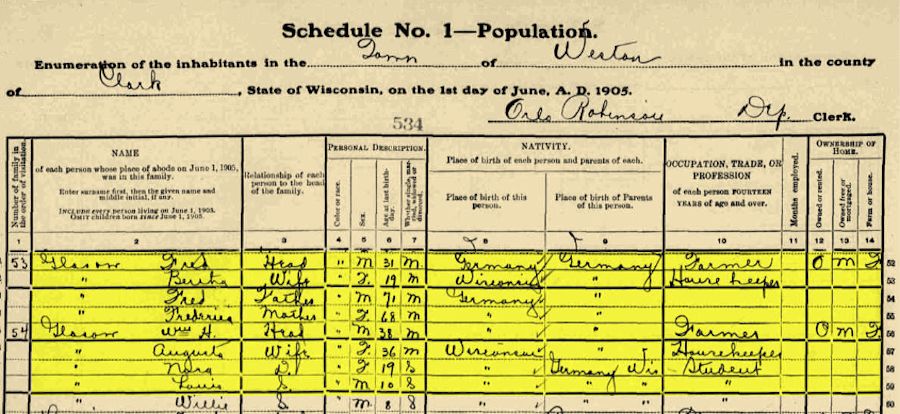 Schedule No. 1—Population.
Enumeration of the inhabitants in the Town of Weston in the county
of Clark, State of Wisconsin, on the 1st day of June, A. D. 1905.
534 Orlo Robinson Dep. Clerk.
Number of family in the order of visitation.
NAME
of each person whose place of abode on June 1, 1905, was in this family.
Enter surname first, then the given name and middle initial, if any.
INCLUDE every person living on June 1, 1905. OMIT children born since June 1, 1905.
Relationship of each person to the head of the family.
PERSONAL DESCRIPTION.
Color or race.
Sex.
Age at last birthday.
Whether single, married, widowed or divorced.
NATIVITY.
Place of birth of each person and parents of each.
Place of birth of this person.
Place of birth of Parents of this person.
OCCUPATION, TRADE, OR PROFESSION
of each person FOURTEEN YEARS of age and over.
Months employed.
OWNERSHIP OF HOME.
Owned or rented.
Owned free or mortgaged.
Farm or house.
1 2 3 4 5 6 7 8 9 10 11 12 13 14
53 Glasow Fred Head " M 31 M Germany Germany Farmer O M F 52
" Bertha Wife " F 19 M Wisconsin " House keeper 53
" Fred Father " M 71 M Germany " 54
" Mother " F 68 M " " 55
54 Glasow Wm H. Head " M 38 M " " Farmer O M F 56
" Augusta Wife " F 36 M Wisconsin " Housekeeper 57
" Nora D " F 19 S " Germany Wis Student 58
" Louis S " M 10 S " " " 59
" Willie S " M 8 S " " 60